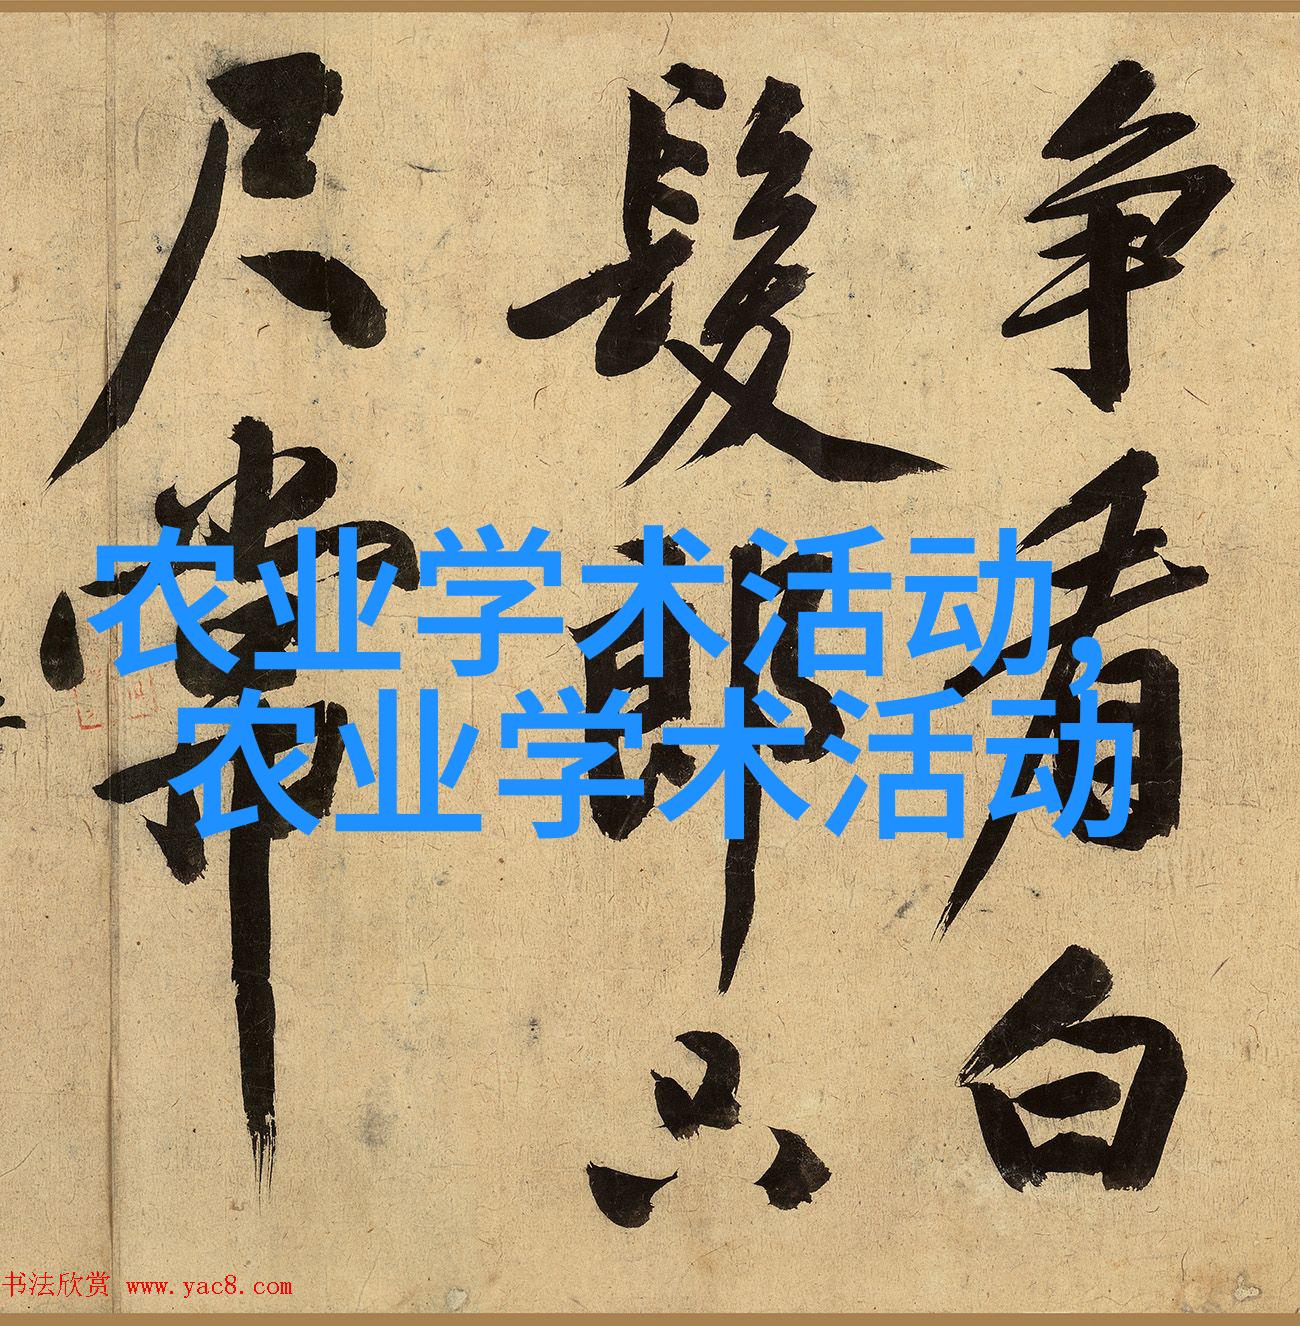 争看白
髮郎只
尺常
农业学术活动,
农业学术活动
书法欣赏 www.yac8.com